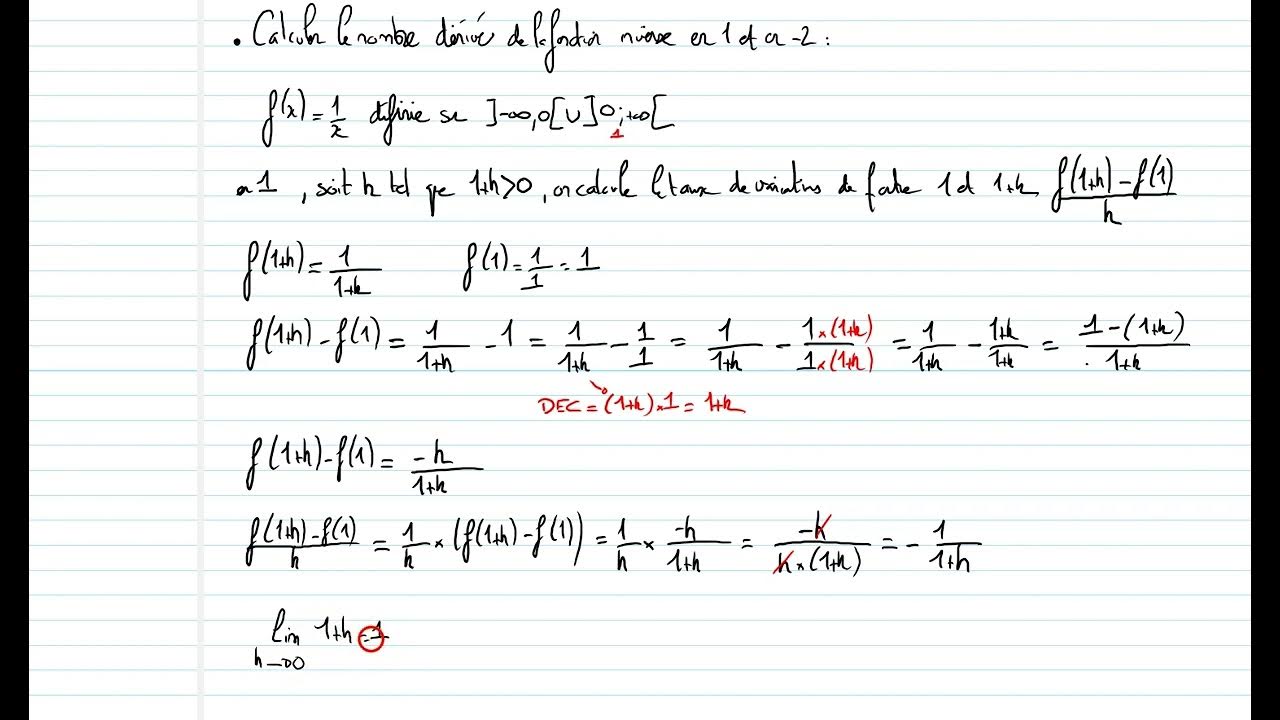 • Calculer le nombre dérivé de la fonction inverse en 1 et en -2 :
f(x) = 1/x définie sur ]-∞,0[ ∪ ]0;+∞[
1
en 1, soit h tel que 1+h>0, on calcule le taux de variations de f entre 1 et 1+h (f(1+h) - f(1))/h
f(1+h) = 1/(1+h) f(1) = 1/1 = 1
f(1+h) - f(1) = 1/(1+h) - 1 = 1/(1+h) - 1/1 = 1/(1+h) - (1×(1+h))/(1×(1+h)) = 1/(1+h) - (1+h)/(1+h) = (1-(1+h))/(1+h)
DEC = (1+h)×1 = 1+h
f(1+h) - f(1) = -h/(1+h)
(f(1+h) - f(1))/h = 1/h × (f(1+h) - f(1)) = 1/h × -h/(1+h) = -h/(h×(1+h)) = - 1/(1+h)
lim 1+h = 1
h→0